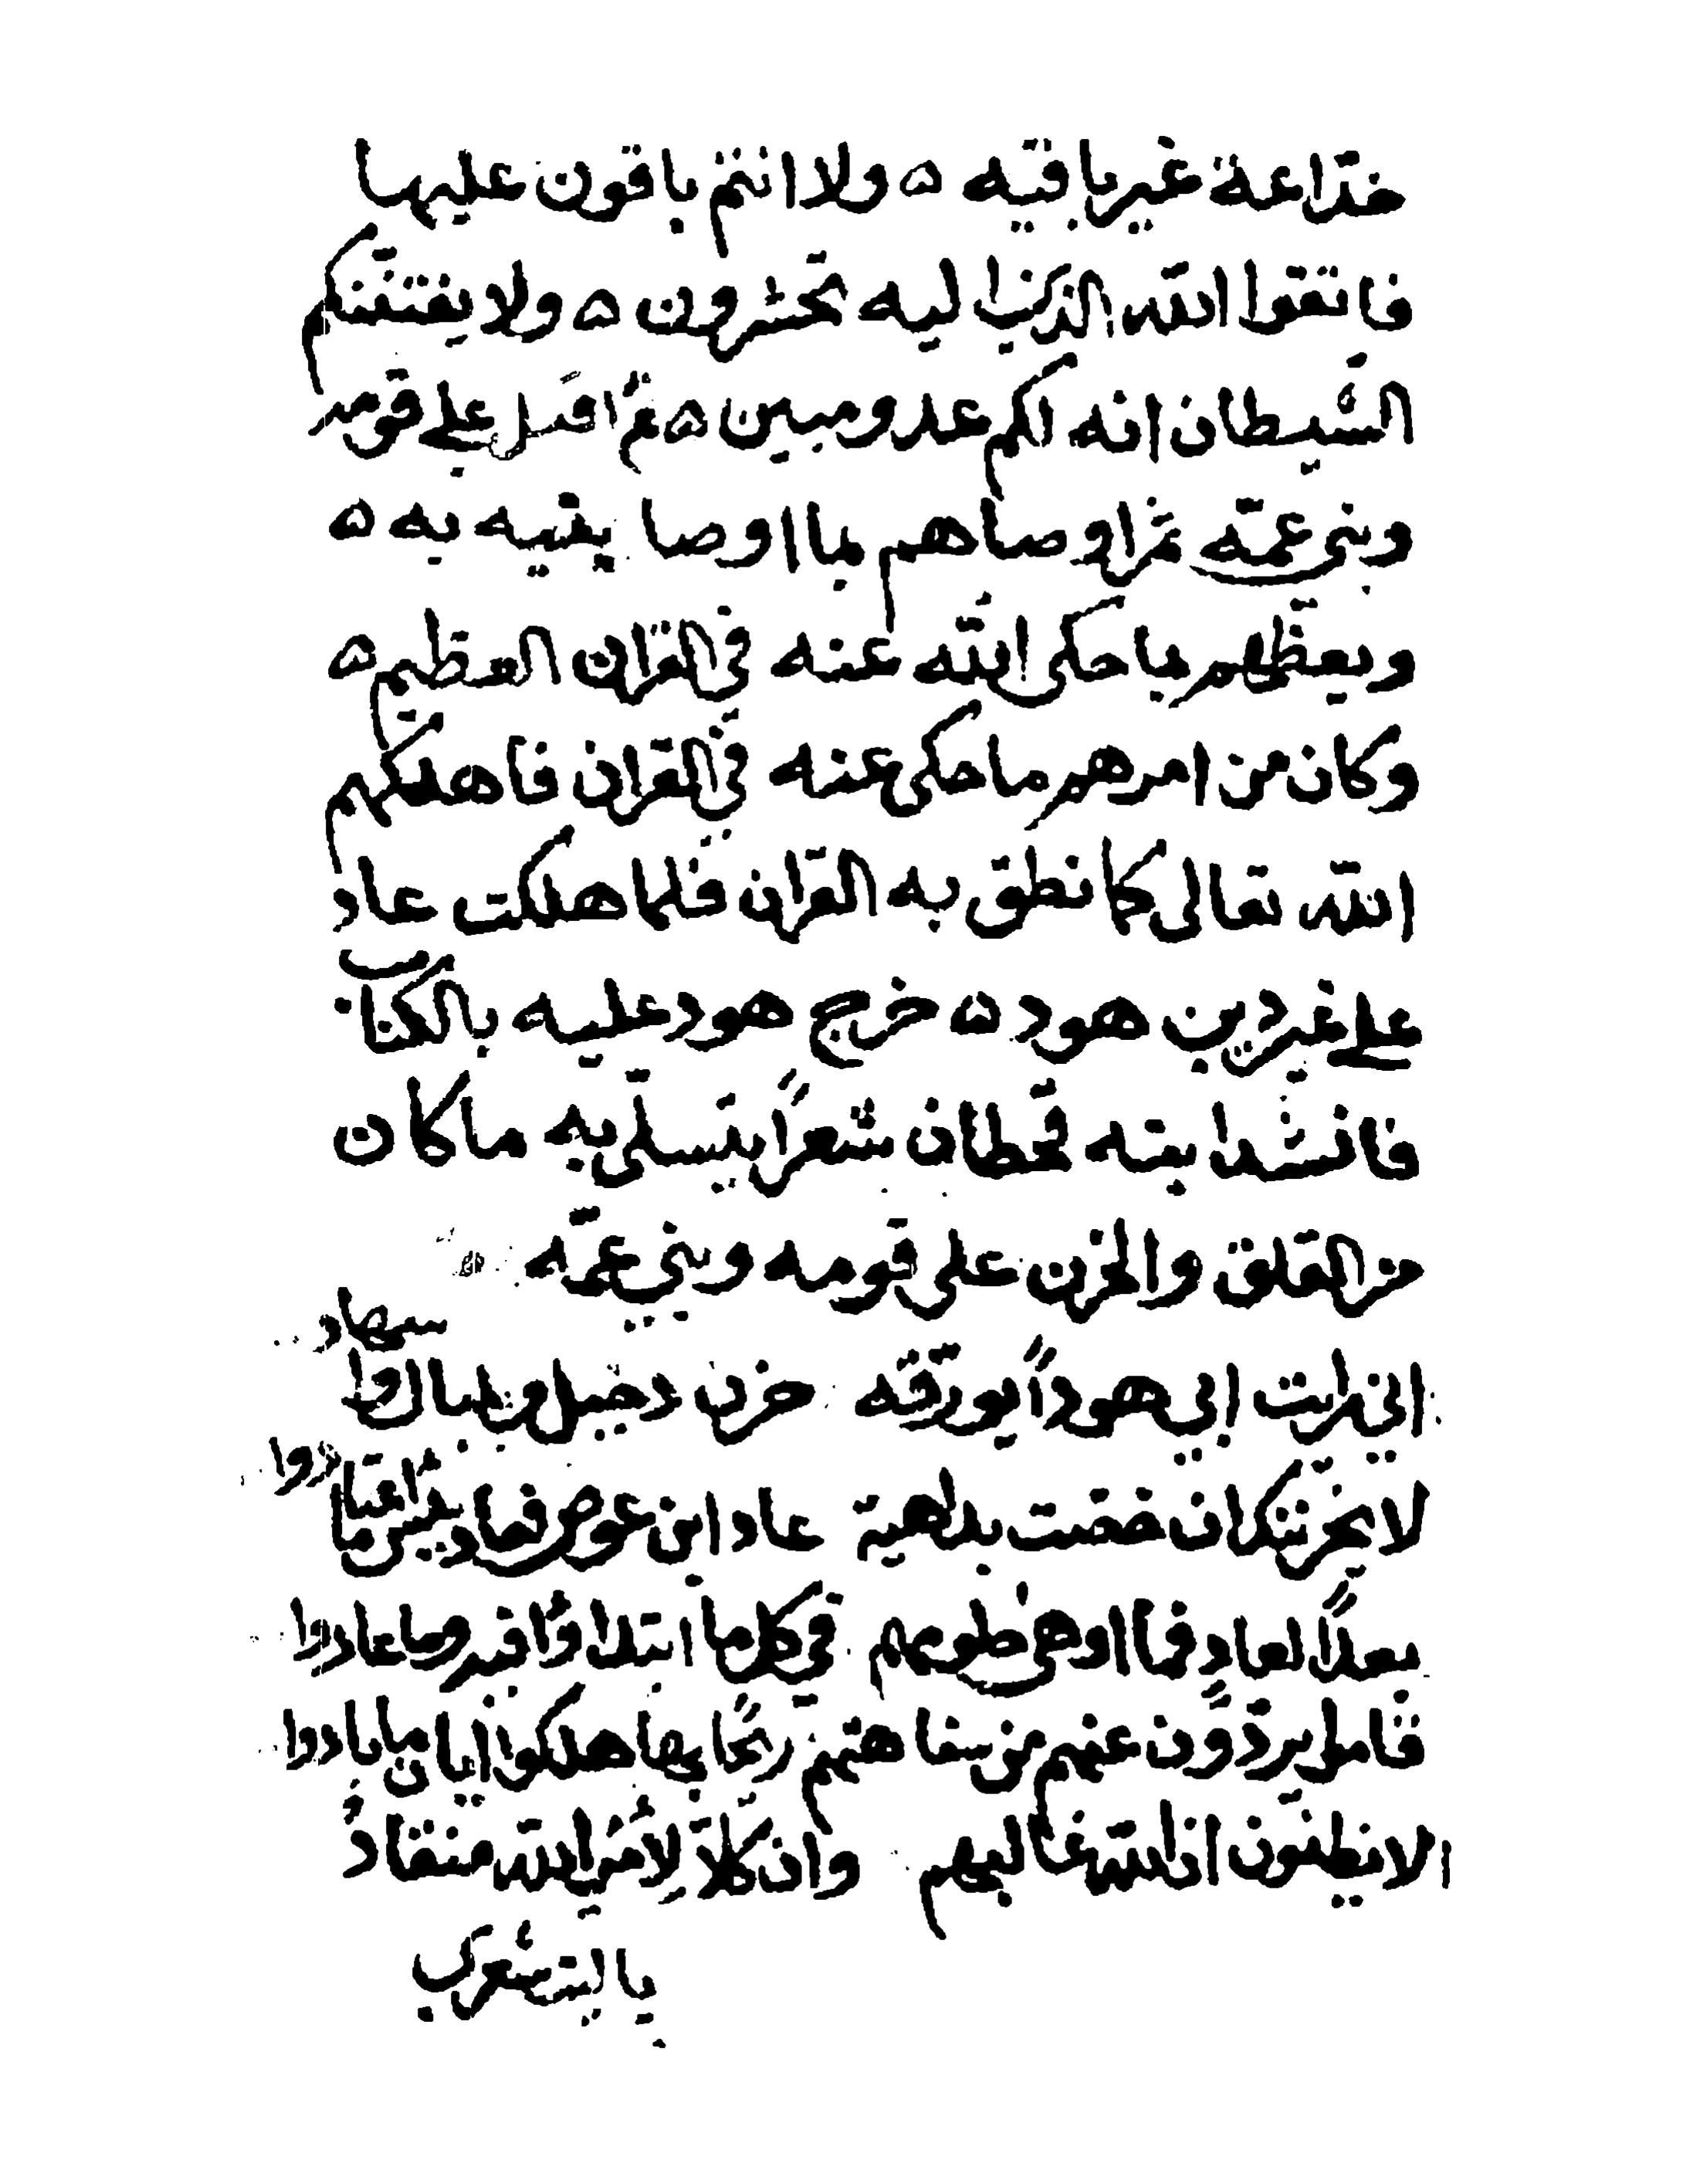 خدّاعة غير باقيه ه ولا انتم باقون عليها
فاتقوا الله الذي اليه تحشرون ه ولا يفتننّكم
الشيطان انه لكم عدو مبين ه ثم اقبل على قومه
وبني عمّه ثم اوصاهم بما اوصا بنيه به ه
ويعظهم بما حكى الله عنه في القران العظيم ه
وكان من امرهم ما حكى عنه في القران فاهلكهم
الله تعالى كما نطق به القران فلما هلكت عاد
على غير دين هود ه خرج هود عليه بالكتاب
فانشد ابنه قحطان شعراً يتسلى به ما كان
من القلق والحزن على قومه وبني عمّه
اني رايت ابي هوداً يورّقه حزن دخيل وبلبال وا سهاد
لا يحزننك ان خصت بداهية عاد ابن عوص فعاد بئس ما اعتادوا
بعداً لعاد فما اوهى حلومهم في كل ما ابتدا وا فيه وما عادوا
قاملـ يردّون عنهم من سفاهتهم ريحاً بها هلكوا ايان ما بادوا
الا يظنون ان الله غالبهم وان كلاّ لامر الله منقادُ
يا ليت شعري